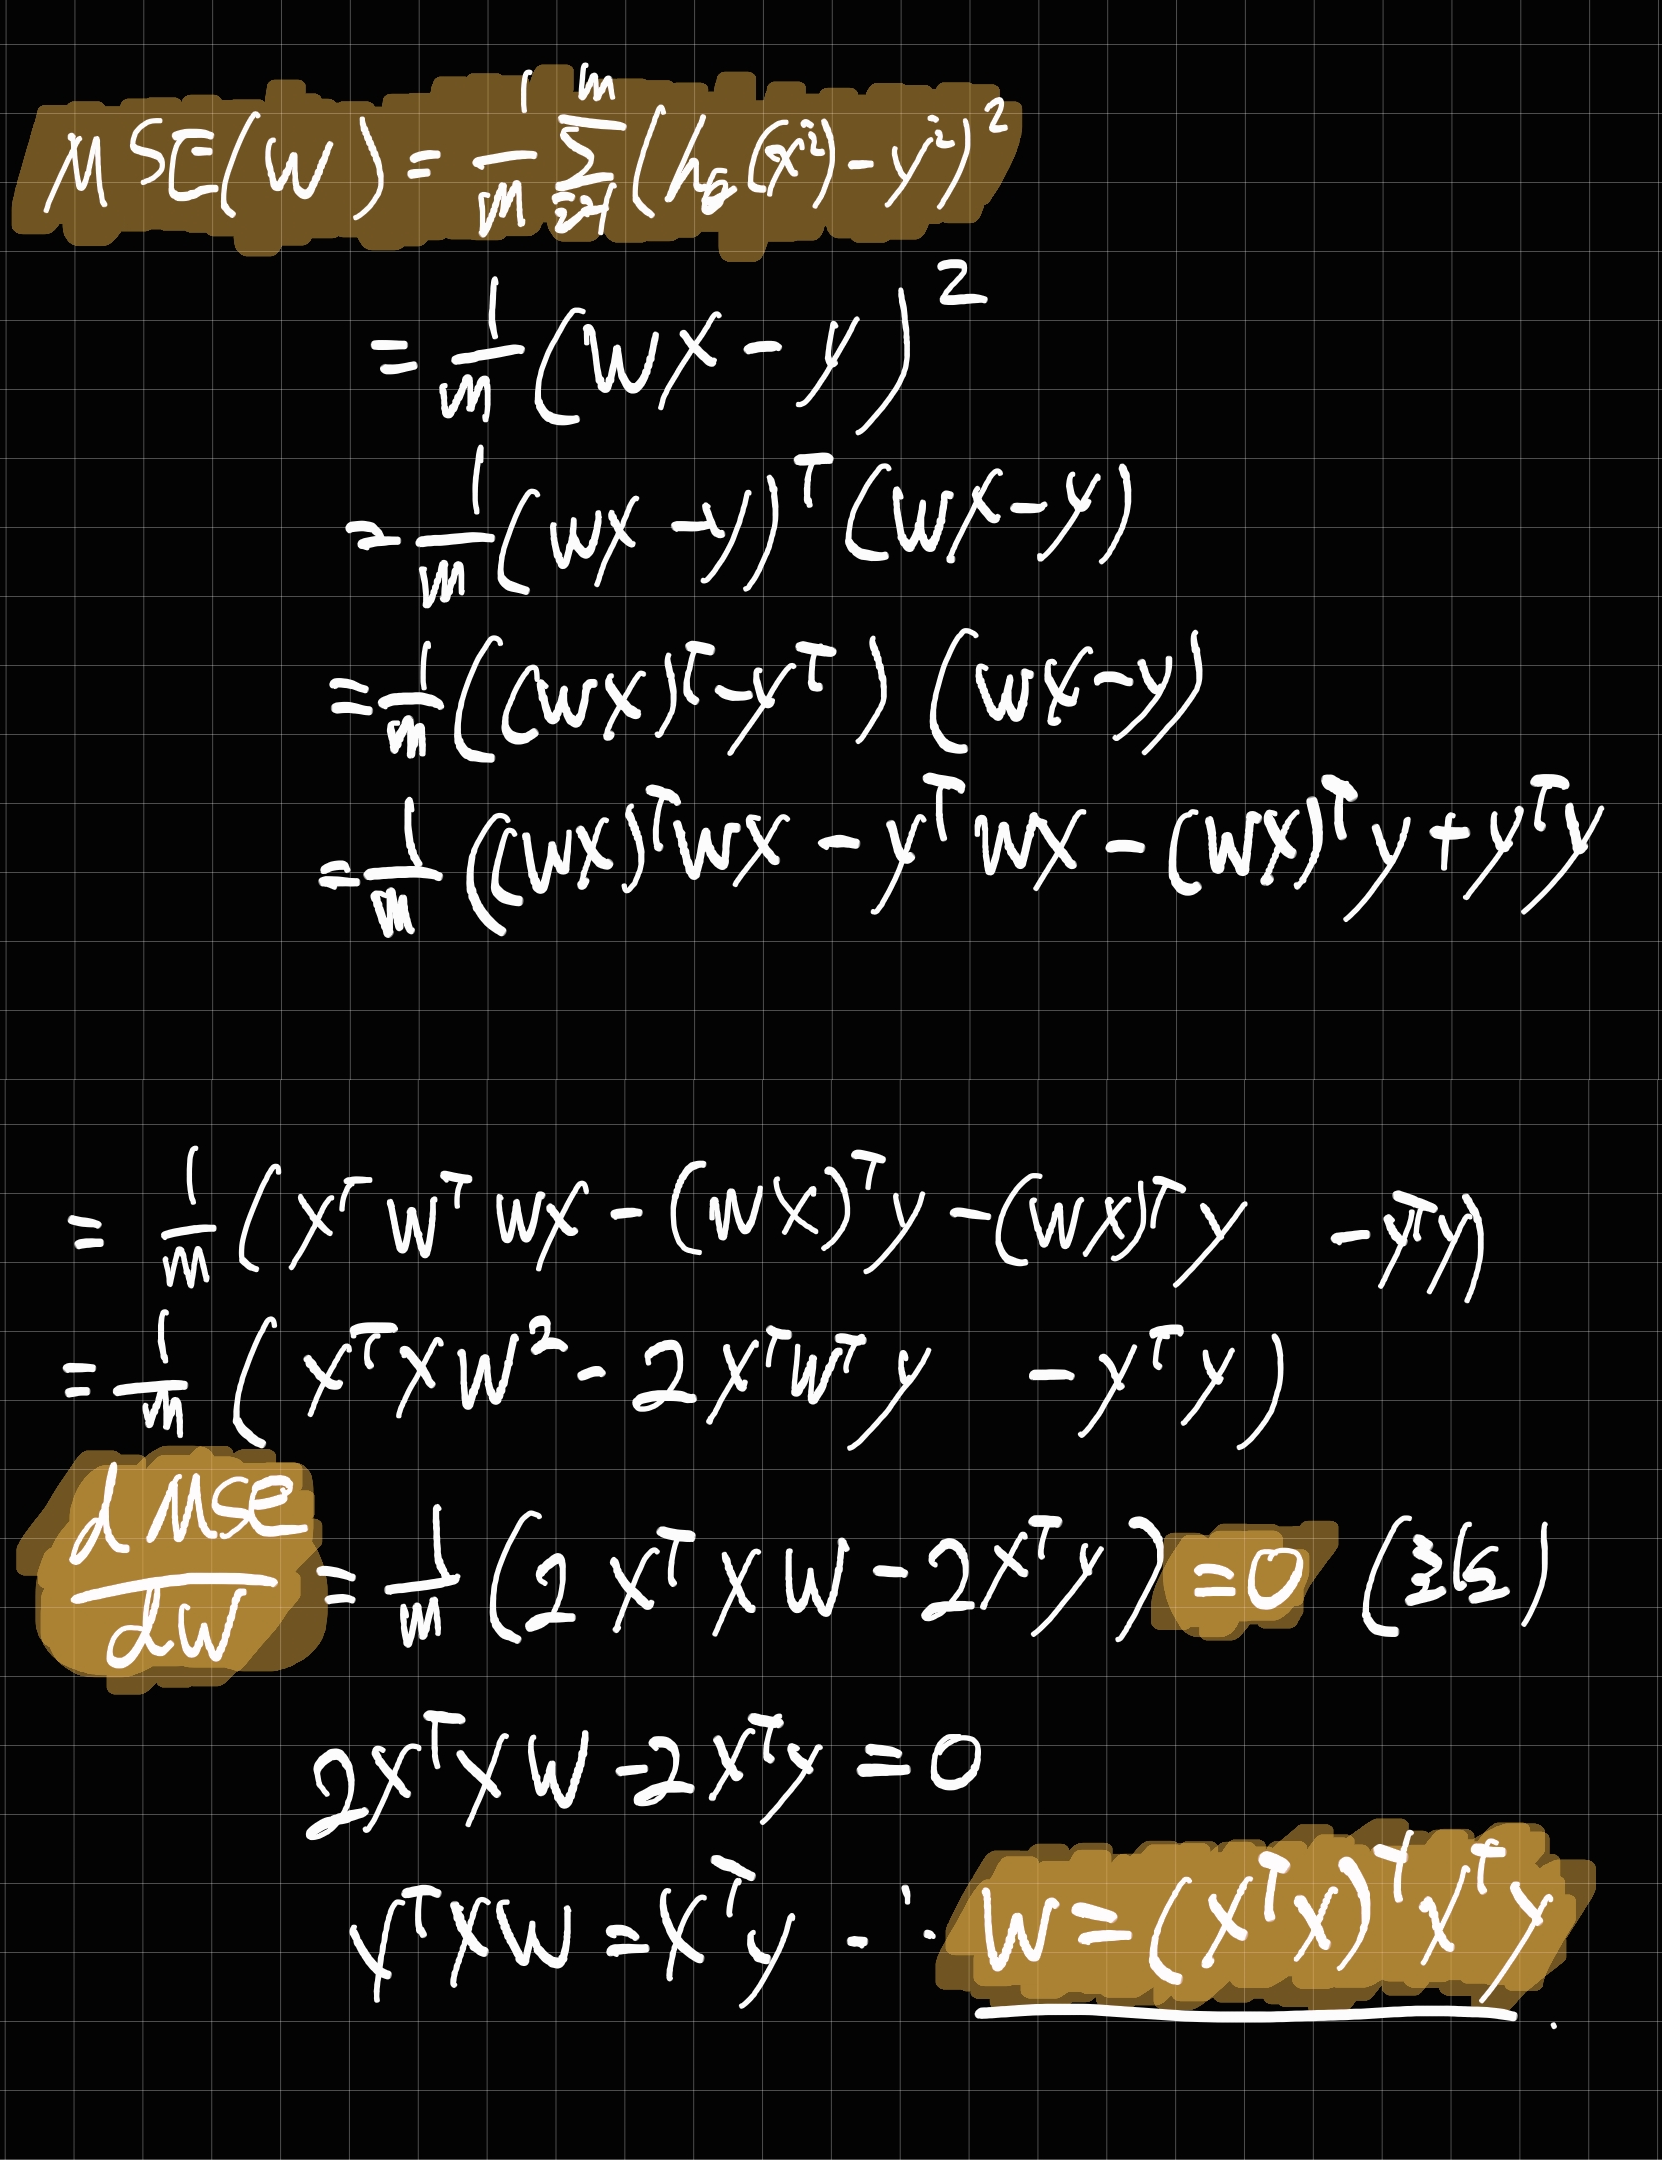 MSE(W) = 1/m Σ_{i=1}^{m} (h_θ(x^i) - y^i)^2
= 1/m (WX - y)^2
= 1/m (WX - y)^T (WX - y)
= 1/m ((WX)^T - y^T) (WX - y)
= 1/m ((WX)^T WX - y^T WX - (WX)^T y + y^T y
= 1/m (X^T W^T WX - (WX)^T y - (WX)^T y - y^T y)
= 1/m (X^T X W^2 - 2 X^T W^T y - y^T y)
d MSE / dW = 1/m (2 X^T X W - 2 X^T y) = 0
2X^T X W - 2 X^T y = 0
X^T X W = X^T y ∴ W = (X^T X)^T X^T y